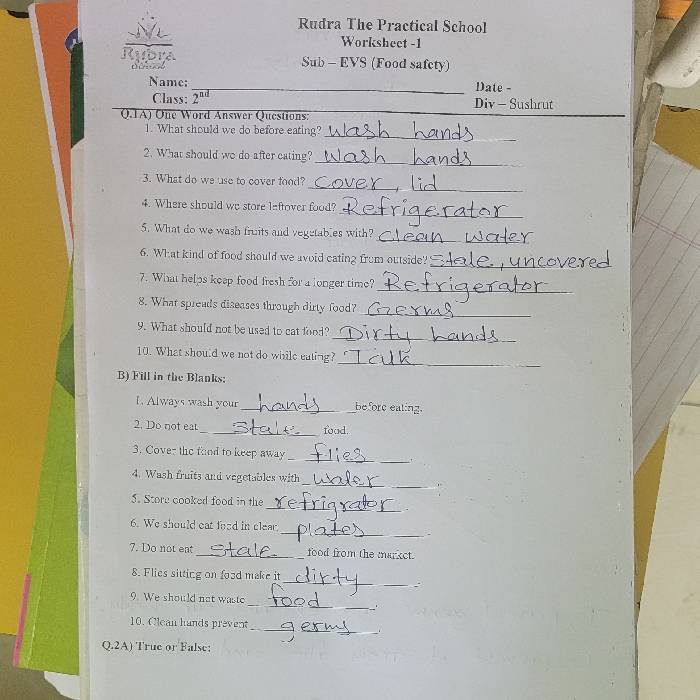 Rudra
School
Rudra The Practical School
Worksheet -1
Sub – EVS (Food safety)
Name:
Date -
Class: 2nd
Div – Sushrut
Q.1A) One Word Answer Questions:
1. What should we do before eating? Wash hands
2. What should we do after eating? Wash hands
3. What do we use to cover food? Cover, lid
4. Where should we store leftover food? Refrigerator
5. What do we wash fruits and vegetables with? Clean water
6. What kind of food should we avoid eating from outside? Stale, uncovered
7. What helps keep food fresh for a longer time? Refrigerator
8. What spreads diseases through dirty food? Germs
9. What should not be used to eat food? Dirty hands
10. What should we not do while eating? Talk
B) Fill in the Blanks:
1. Always wash your hands before eating.
2. Do not eat stale food.
3. Cover the food to keep away flies.
4. Wash fruits and vegetables with water.
5. Store cooked food in the refrigrator.
6. We should eat food in clean plates.
7. Do not eat stale food from the market.
8. Flies sitting on food make it dirty.
9. We should not waste food.
10. Clean hands prevent germs.
Q.2A) True or False: